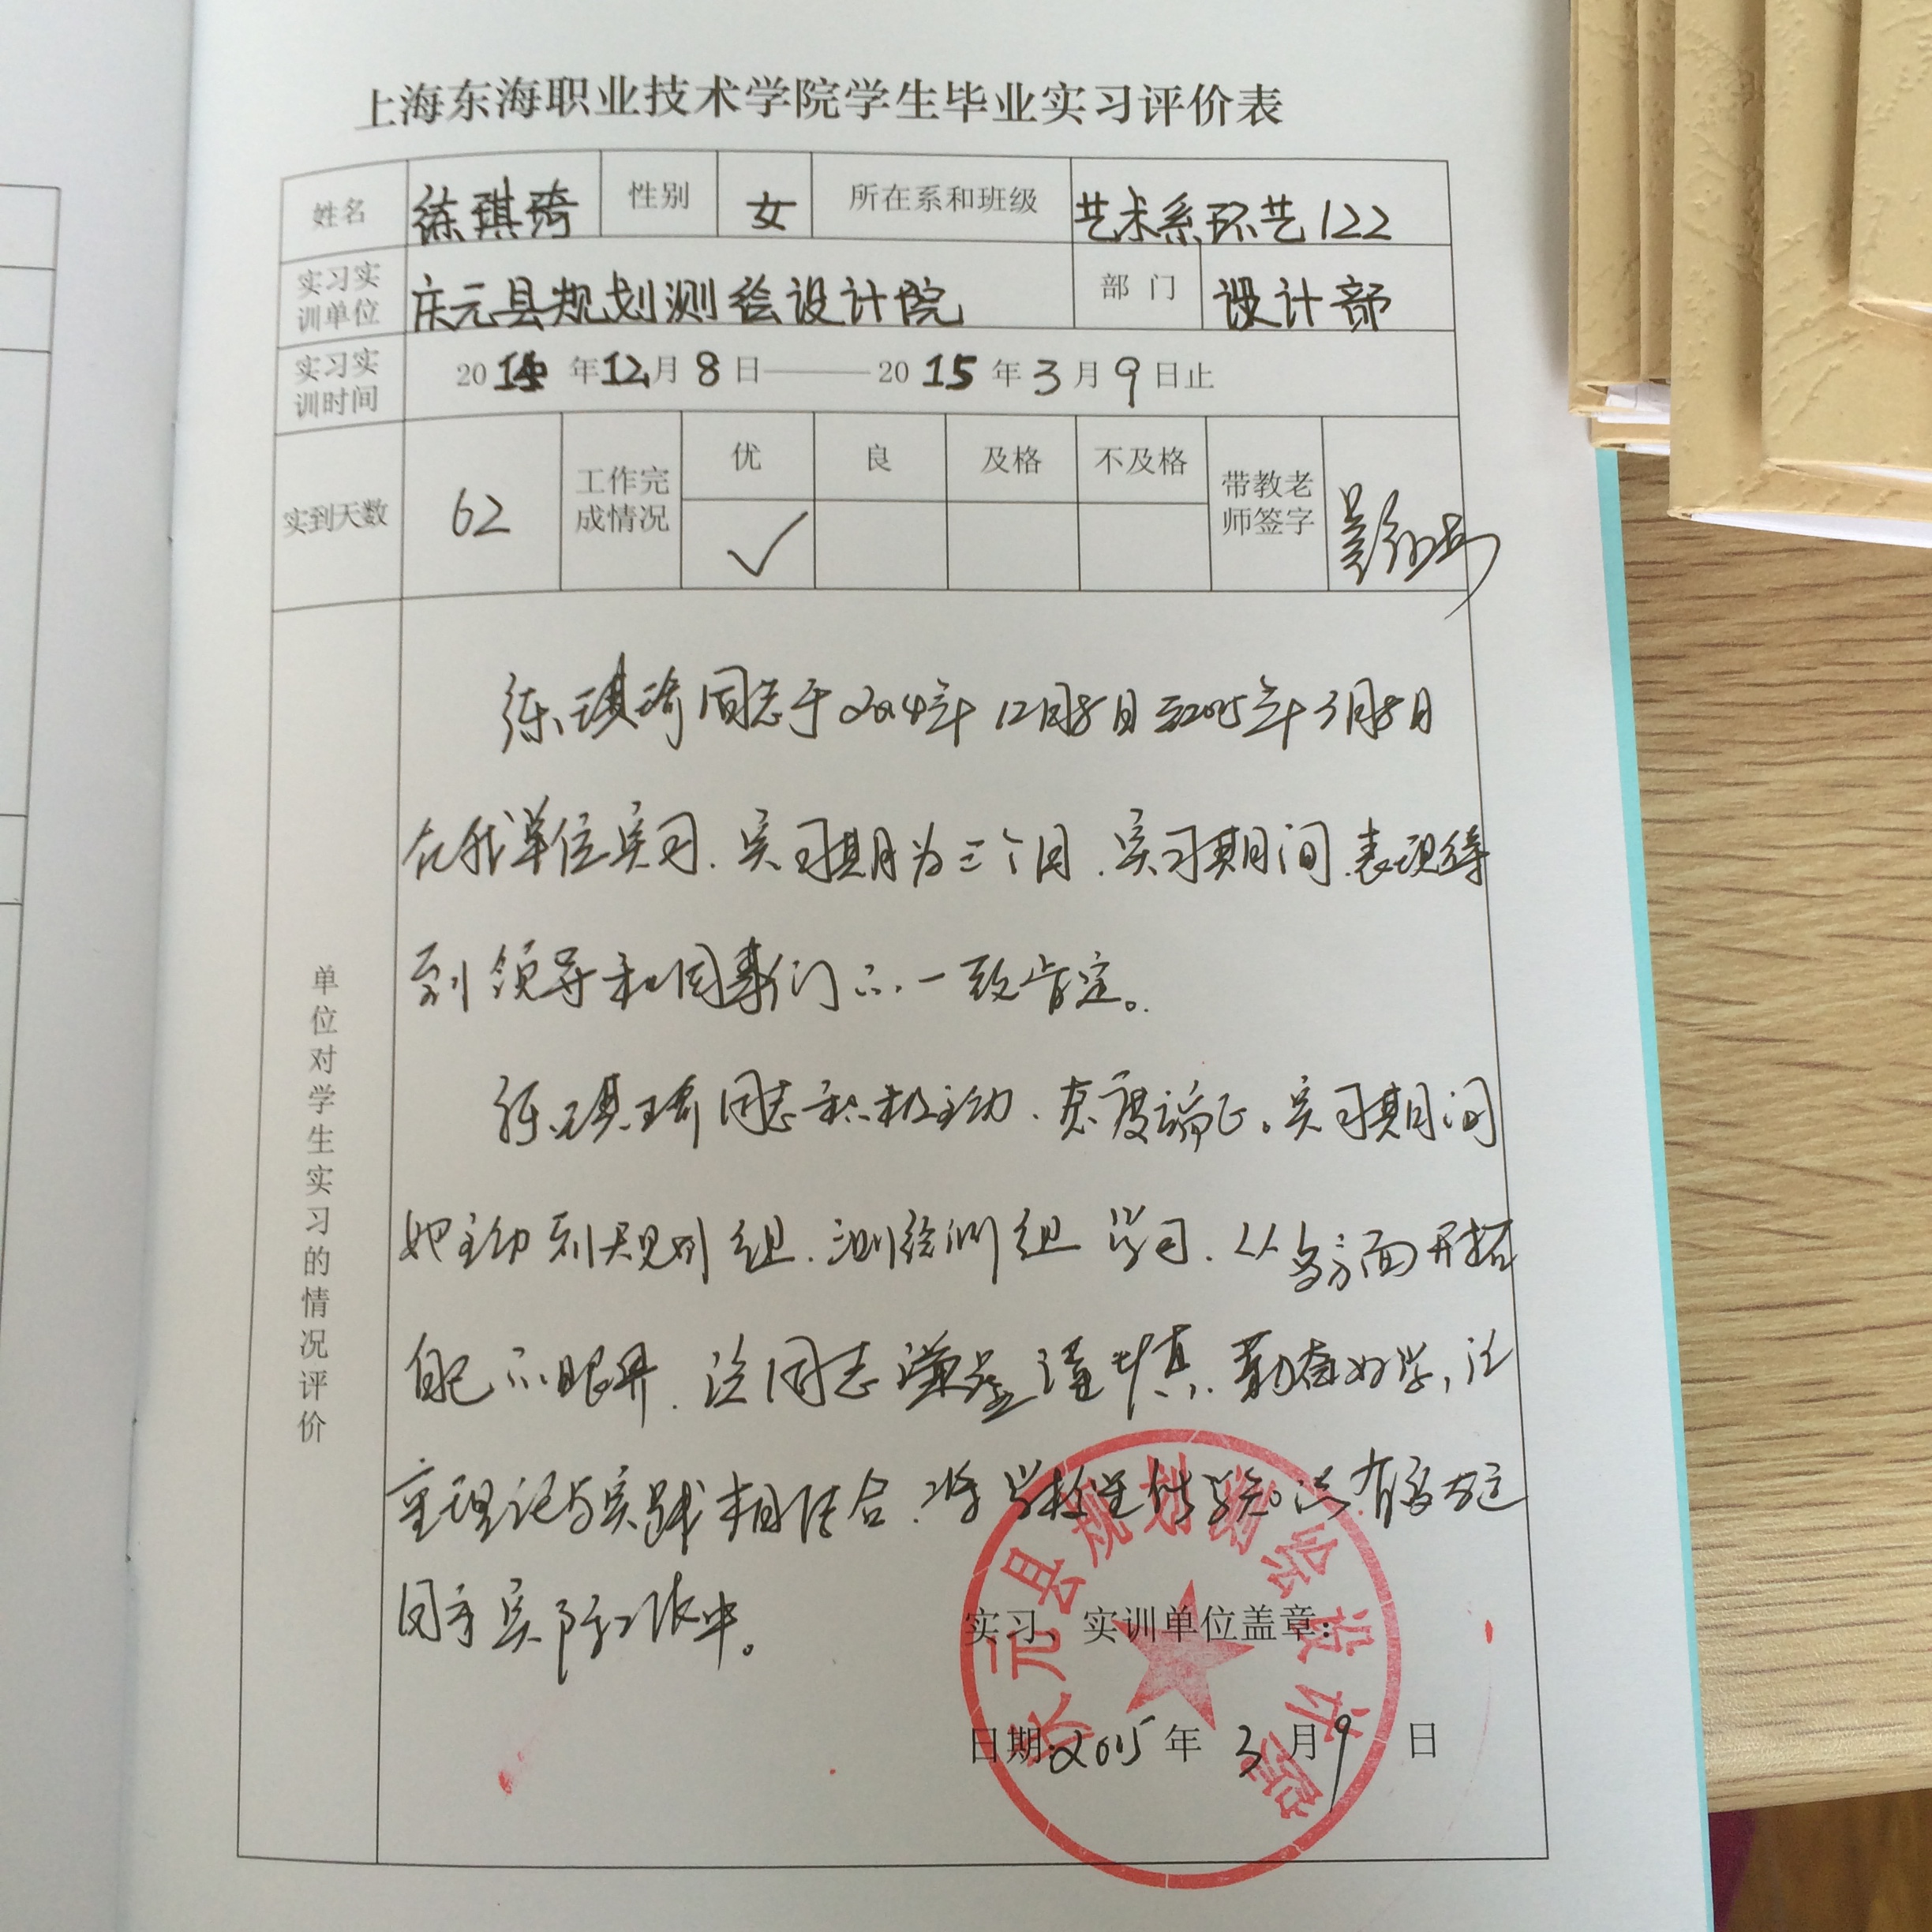 上海东海职业技术学院学生毕业实习评价表
姓名 练琪琦 性别 女 所在系和班级 艺术系环艺122
实习实训单位 庆元县规划测绘设计院 部门 设计部
实习实训时间 2014年12月8日——2015年3月9日止
实到天数 62 工作完成情况 优 良 及格 不及格 带教老师签字
✓
单位对学生实习的情况评价
练琪琦同志于2014年12月8日至2015年3月8日
在我单位实习.实习期为三个月.实习期间.表现得
到领导和同事们的一致肯定。
练琪琦同志积极主动.态度端正。实习期间
她主动到规划组.测绘组学习.从多方面开拓
自己的眼界.该同志谦虚谨慎.勤奋好学,注
重理论与实践相结合.将学校所学知识有效地运
用于实际工作中。
实习、实训单位盖章:
日期:2015年3月9日
庆元县规划测绘设计院